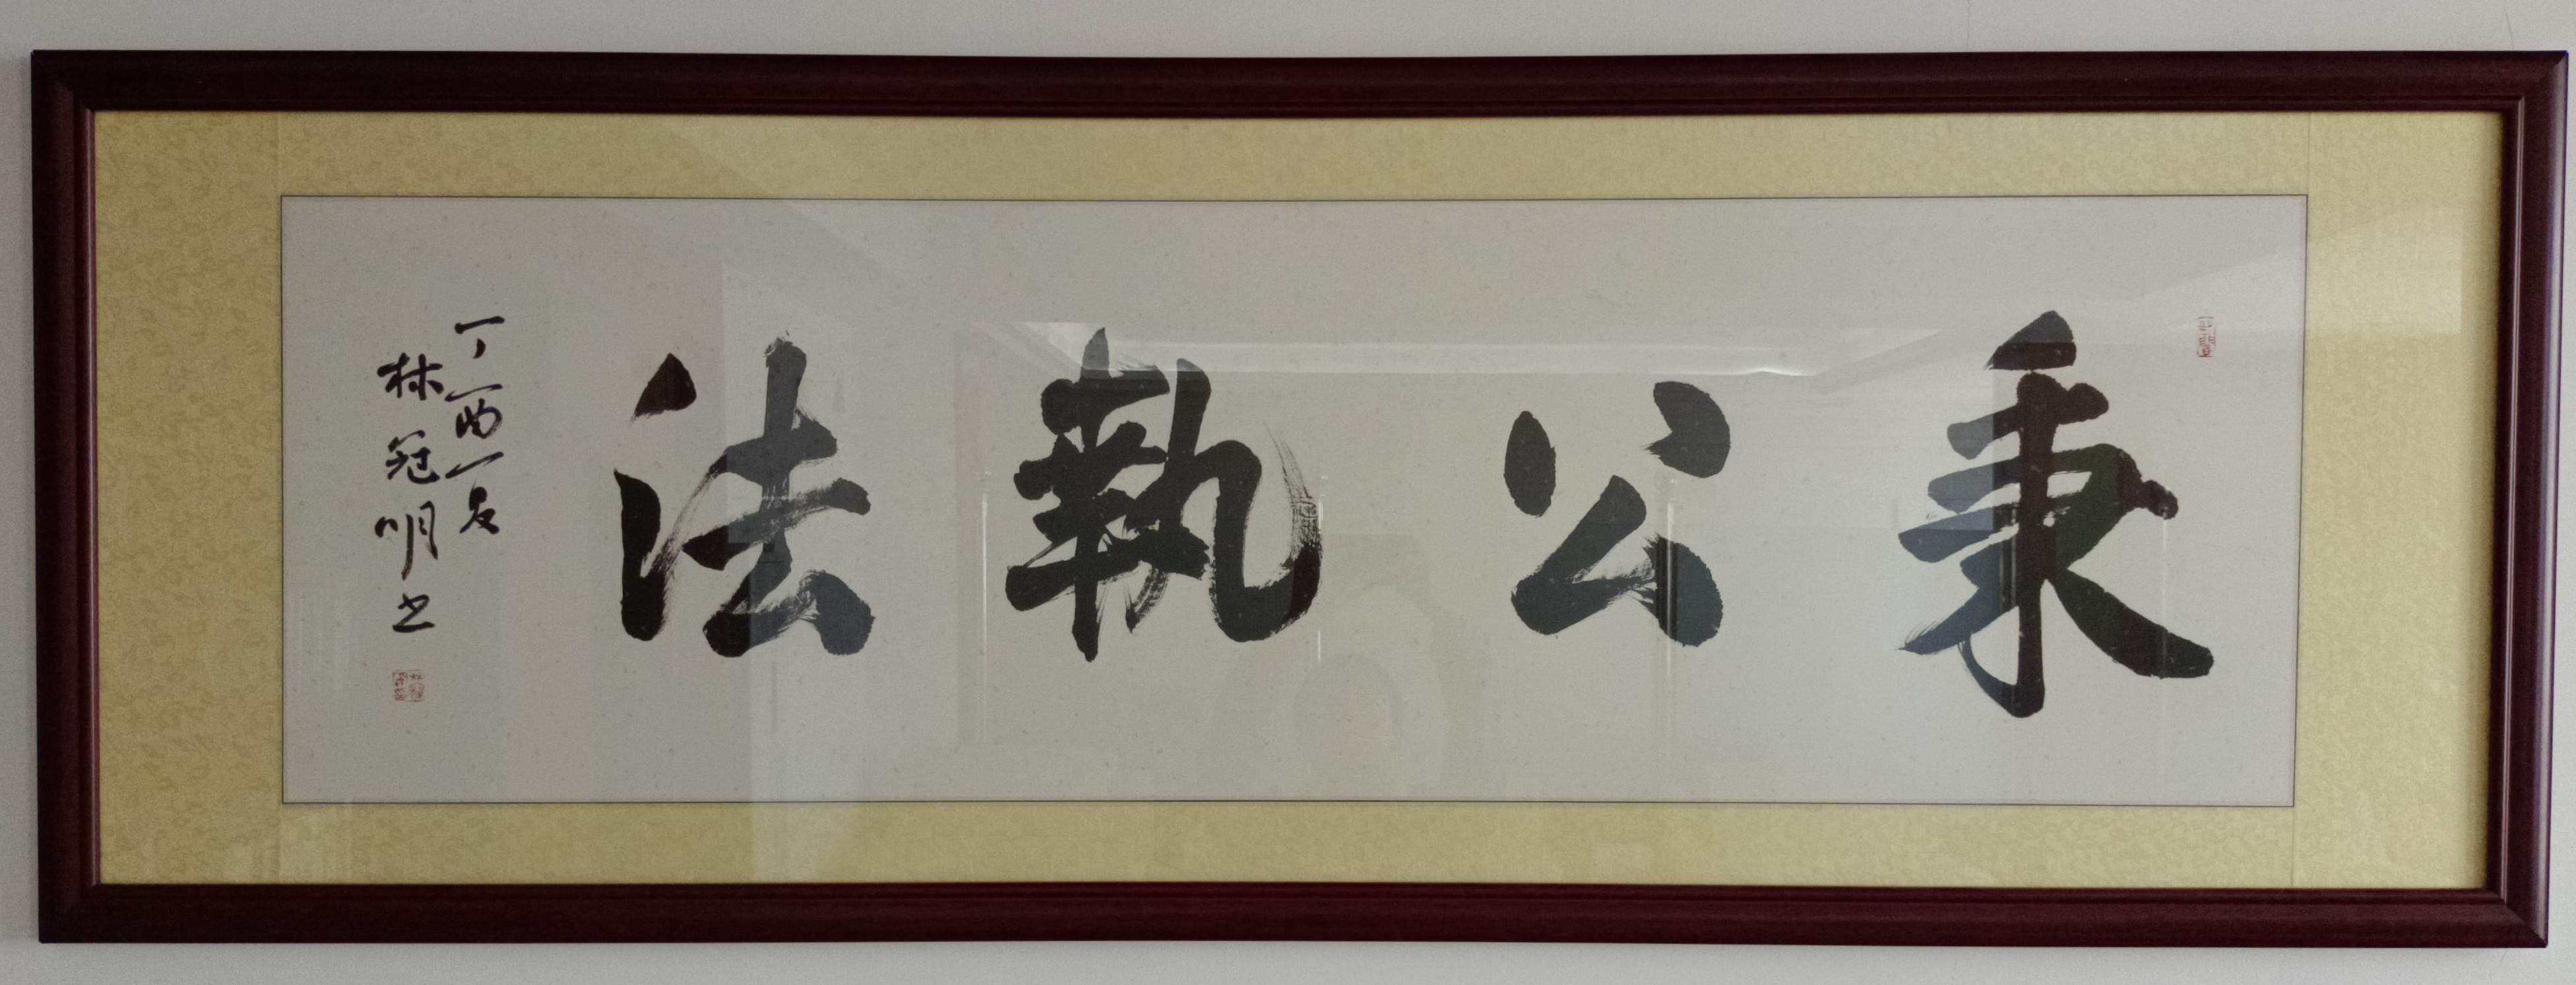 秉公執法
丁酉夏
林冠明书